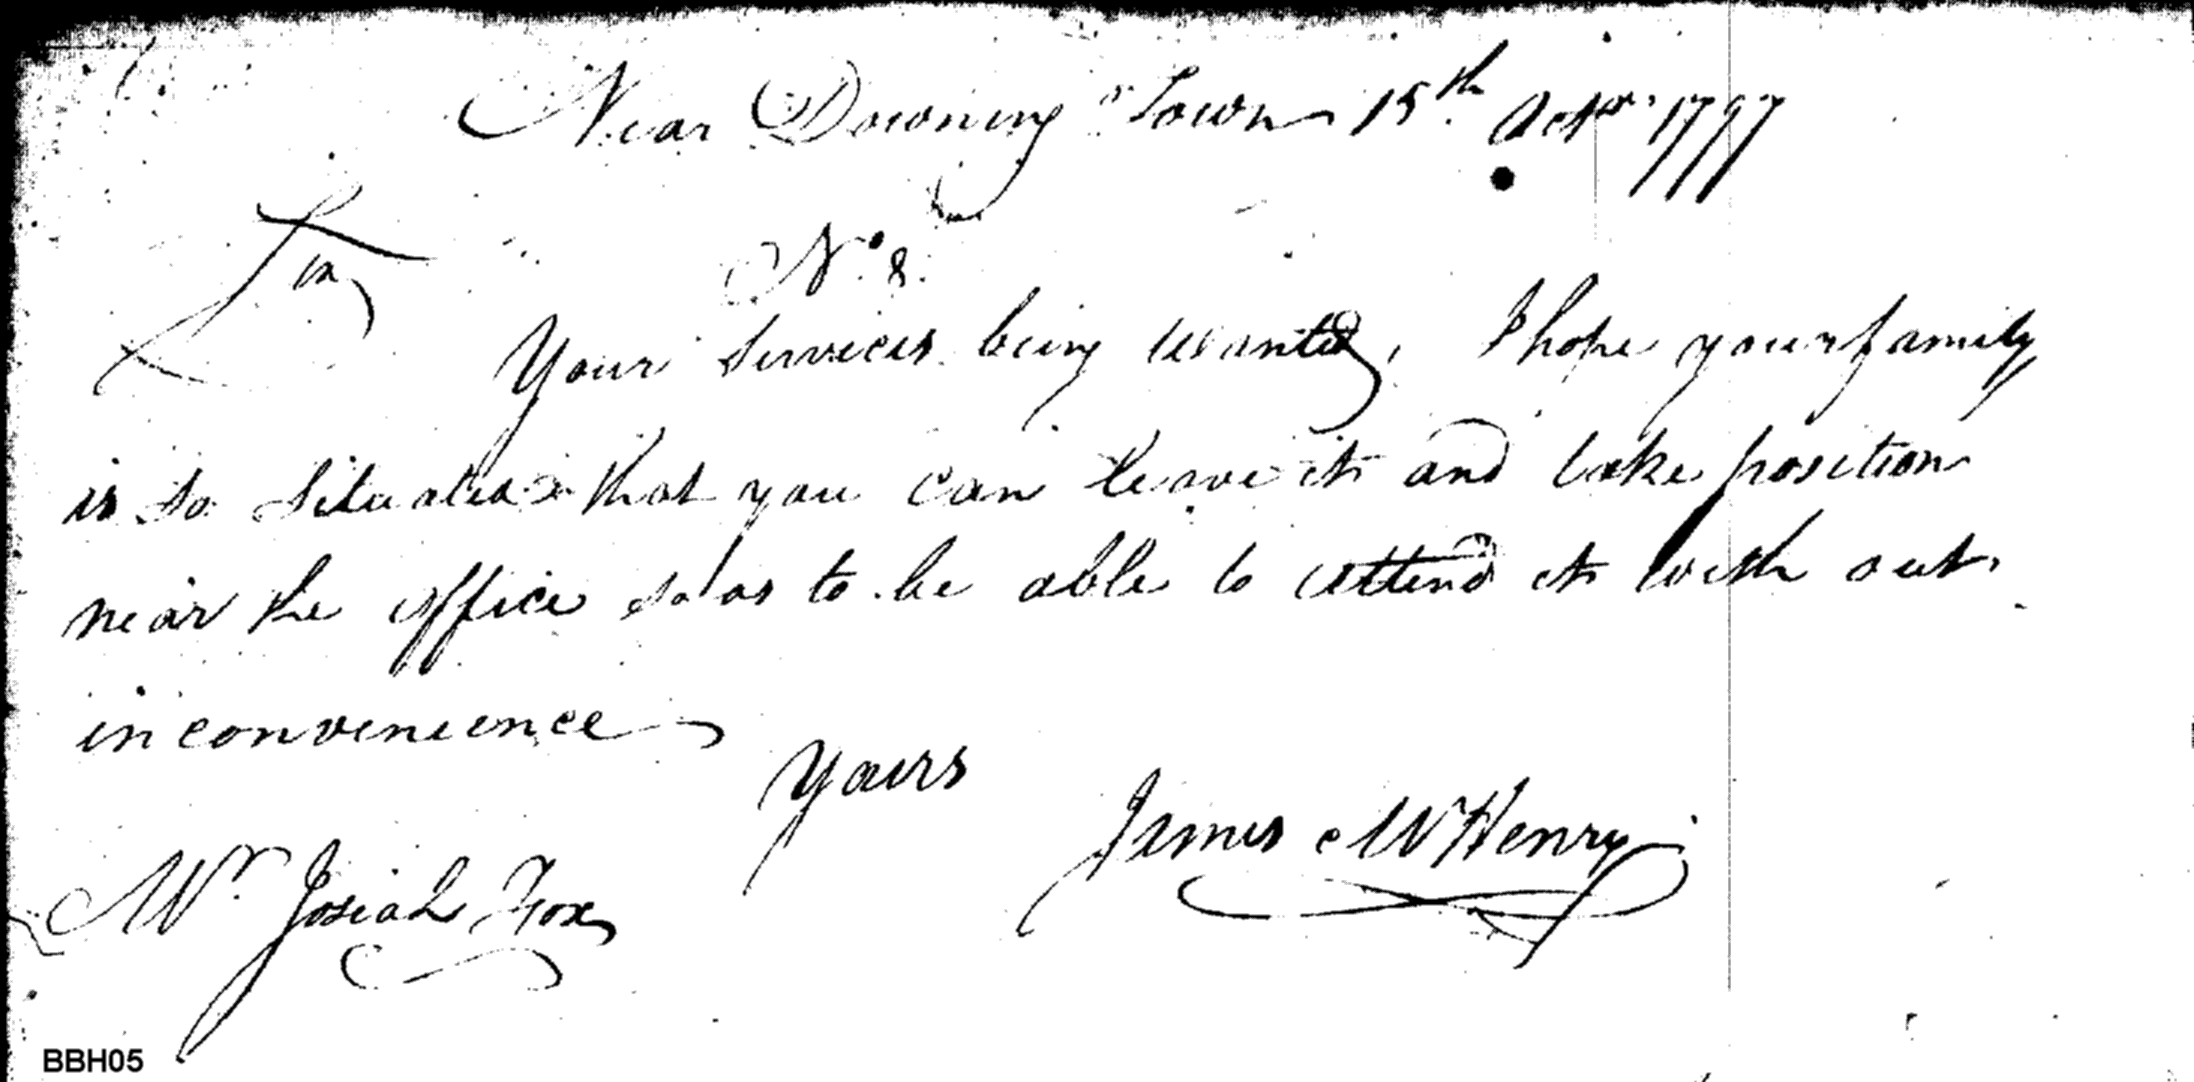 Near Downing Town 15th Octr. 1797
Sir,
No. 8.
Your services being wanted, I hope your family
is so situated that you can leave it and take position
near the office so as to be able to attend it with out
inconvenience
Yours
James McHenry
Mr. Josiah Fox
BBH05